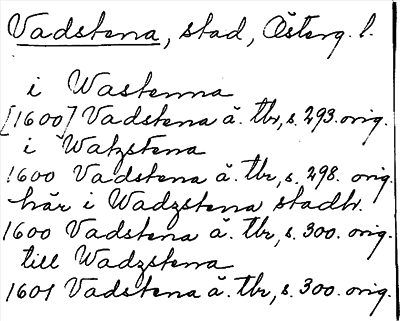 Vadstena, stad, Österg. l.
i Wastenna
[1600] Vadstena ä. tbr, s. 293. orig.
i Watzstena
1600 Vadstena ä. tbr, s. 298. orig.
här i Wadzstena stadh.
1600 Vadstena ä. tbr, s. 300. orig.
till Wadzstena
1601 Vadstena ä. tbr, s. 300. orig.